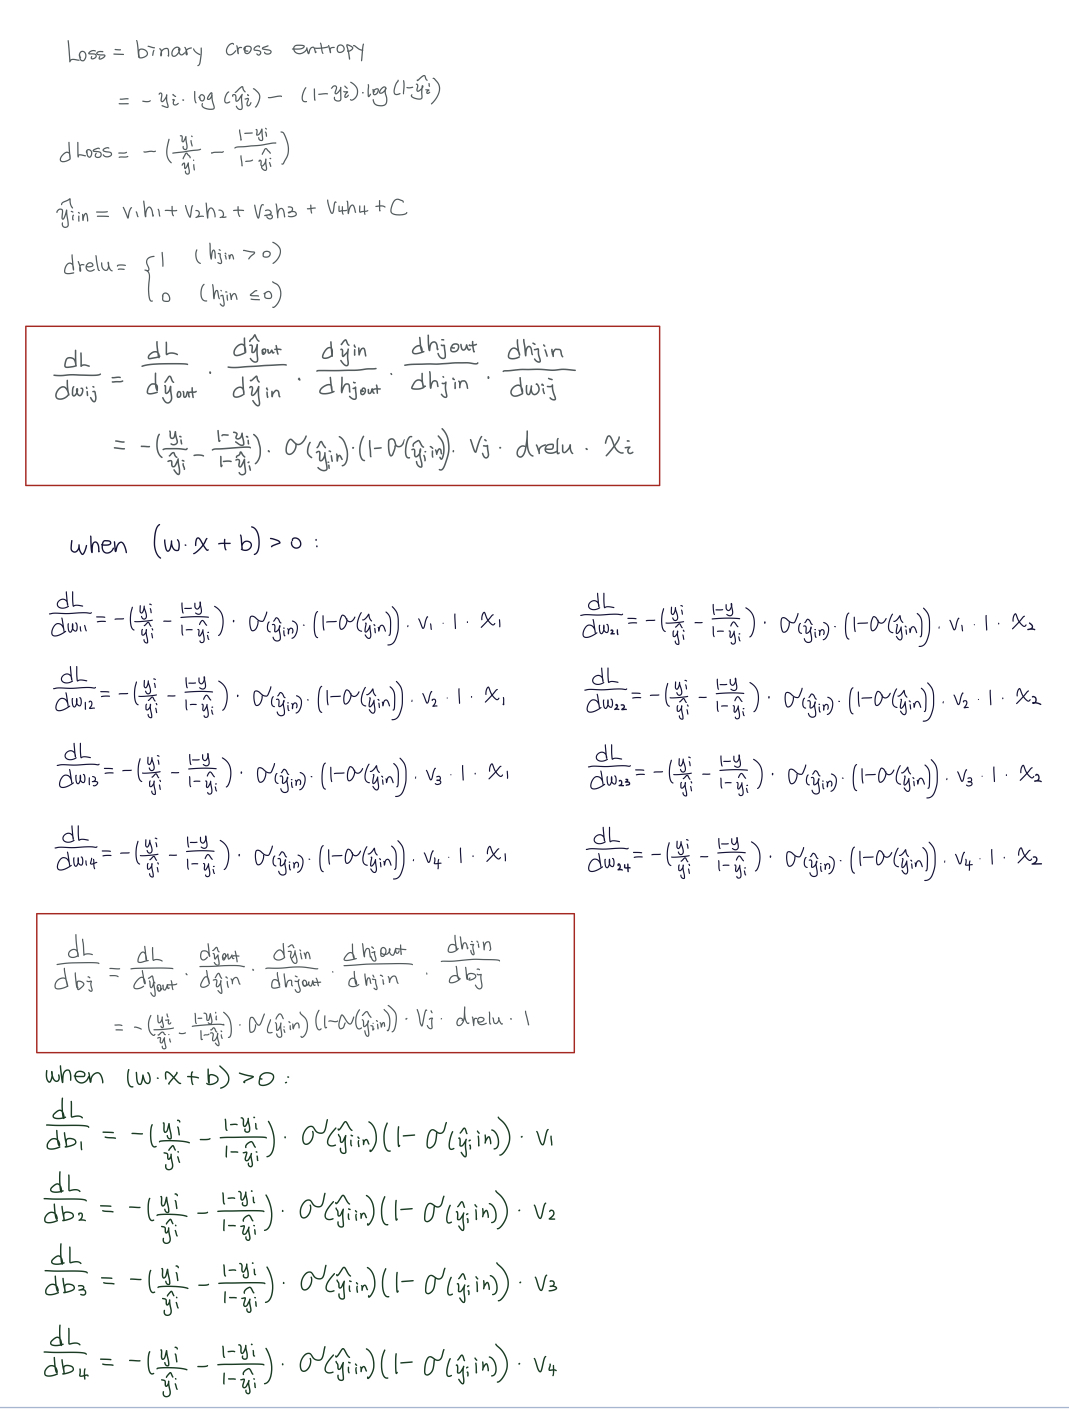 Loss = binary cross entropy
= - yi · log (ŷi) - (1-yi) · log (1-ŷi)
dLoss = - (yi/ŷi - 1-yi/1-ŷi)
ŷiin = v1h1 + v2h2 + v3h3 + v4h4 + C
drelu = { 1 (hjin > 0)
0 (hjin ≤ 0)
dL/dwij = dL/dŷout · dŷout/dŷin · dŷin/dhjout · dhjout/dhjin · dhjin/dwij
= -(yi/ŷi - 1-yi/1-ŷi) · σ(ŷiin) · (1-σ(ŷiin)) · Vj · drelu · xi
when (w·x + b) > 0 :
dL/dw11 = -(yi/ŷi - 1-y/1-ŷi) · σ(ŷin) · (1-σ(ŷin)) · v1 · 1 · x1
dL/dw21 = -(yi/ŷi - 1-y/1-ŷi) · σ(ŷin) · (1-σ(ŷin)) · v1 · 1 · x2
dL/dw12 = -(yi/ŷi - 1-y/1-ŷi) · σ(ŷin) · (1-σ(ŷin)) · v2 · 1 · x1
dL/dw22 = -(yi/ŷi - 1-y/1-ŷi) · σ(ŷin) · (1-σ(ŷin)) · v2 · 1 · x2
dL/dw13 = -(yi/ŷi - 1-y/1-ŷi) · σ(ŷin) · (1-σ(ŷin)) · v3 · 1 · x1
dL/dw23 = -(yi/ŷi - 1-y/1-ŷi) · σ(ŷin) · (1-σ(ŷin)) · v3 · 1 · x2
dL/dw14 = -(yi/ŷi - 1-y/1-ŷi) · σ(ŷin) · (1-σ(ŷin)) · v4 · 1 · x1
dL/dw24 = -(yi/ŷi - 1-y/1-ŷi) · σ(ŷin) · (1-σ(ŷin)) · v4 · 1 · x2
dL/dbj = dL/dyout · dŷout/dŷin · dŷin/dhjout · dhjout/dhjin · dhjin/dbj
= -(yi/ŷi - 1-yi/1-ŷi) · σ(ŷiin) (1-σ(ŷiin)) · Vj · drelu · 1
when (w·x + b) > 0 :
dL/db1 = -(yi/ŷi - 1-yi/1-ŷi) · σ(ŷiin)(1- σ(ŷiin)) · v1
dL/db2 = -(yi/ŷi - 1-yi/1-ŷi) · σ(ŷiin)(1- σ(ŷiin)) · v2
dL/db3 = -(yi/ŷi - 1-yi/1-ŷi) · σ(ŷiin)(1- σ(ŷiin)) · v3
dL/db4 = -(yi/ŷi - 1-yi/1-ŷi) · σ(ŷiin)(1- σ(ŷiin)) · v4